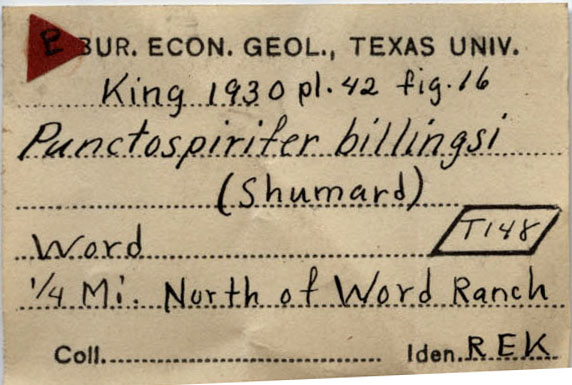 P BUR. ECON. GEOL., TEXAS UNIV.
King 1930 pl. 42 fig. 16
Punctospirifer billingsi
(Shumard)
Word T148
1/4 Mi. North of Word Ranch
Coll. Iden. REK